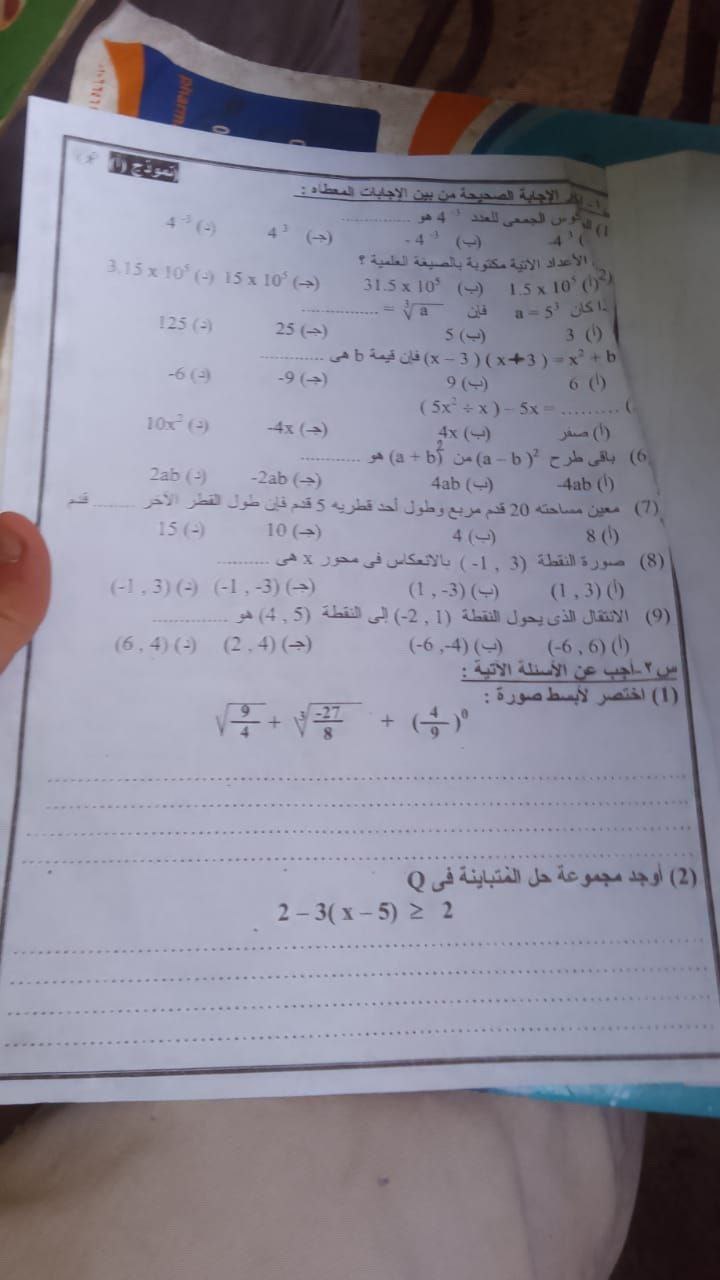 pharm
نموذج (أ)
الإجابة الصحيحة من بين الإجابات المعطاه :
الجمعى للعدد 4⁻³ هو ............
-4³ (ب) -4⁻³ (جـ) 4³ (د) 4⁻³
(2) الأعداد الآتية مكتوبة بالصيغة العلمية ؟
(أ) 1.5 x 10⁵ (ب) 31.5 x 10⁵ (جـ) 15 x 10⁵ (د) 3.15 x 10⁵
كان a = 5³ فإن ∛a = ............
(أ) 3 (ب) 5 (جـ) 25 (د) 125
(x – 3) (x + 3) = x² + b فإن قيمة b هى ............
(أ) 6 (ب) 9 (جـ) -9 (د) -6
(5x² ÷ x) – 5x = .........
(أ) صفر (ب) 4x (جـ) -4x (د) 10x²
(6) باقى طرح (a – b)² من (a + b)² هو ............
(أ) -4ab (ب) 4ab (جـ) -2ab (د) 2ab
(7) معين مساحته 20 قدم مربع وطول أحد قطريه 5 قدم فإن طول القطر الآخر ......... قدم
(أ) 8 (ب) 4 (جـ) 10 (د) 15
(8) صورة النقطة (-1 , 3) بالانعكاس فى محور x هى ..........
(أ) (1 , 3) (ب) (1 , -3) (جـ) (-1 , -3) (د) (-1 , 3)
(9) الانتقال الذى يحول النقطة (-2 , 1) إلى النقطة (4 , 5) هو ..............
(أ) (-6 , 6) (ب) (-6 ,-4) (جـ) (2 , 4) (د) (6 , 4)
س٢-أجب عن الأسئلة الآتية :
(1) اختصر لأبسط صورة :
√(9/4) + ∛(-27/8) + (4/9)⁰
(2) أوجد مجموعة حل المتباينة فى Q
2 – 3( x – 5) ≥ 2